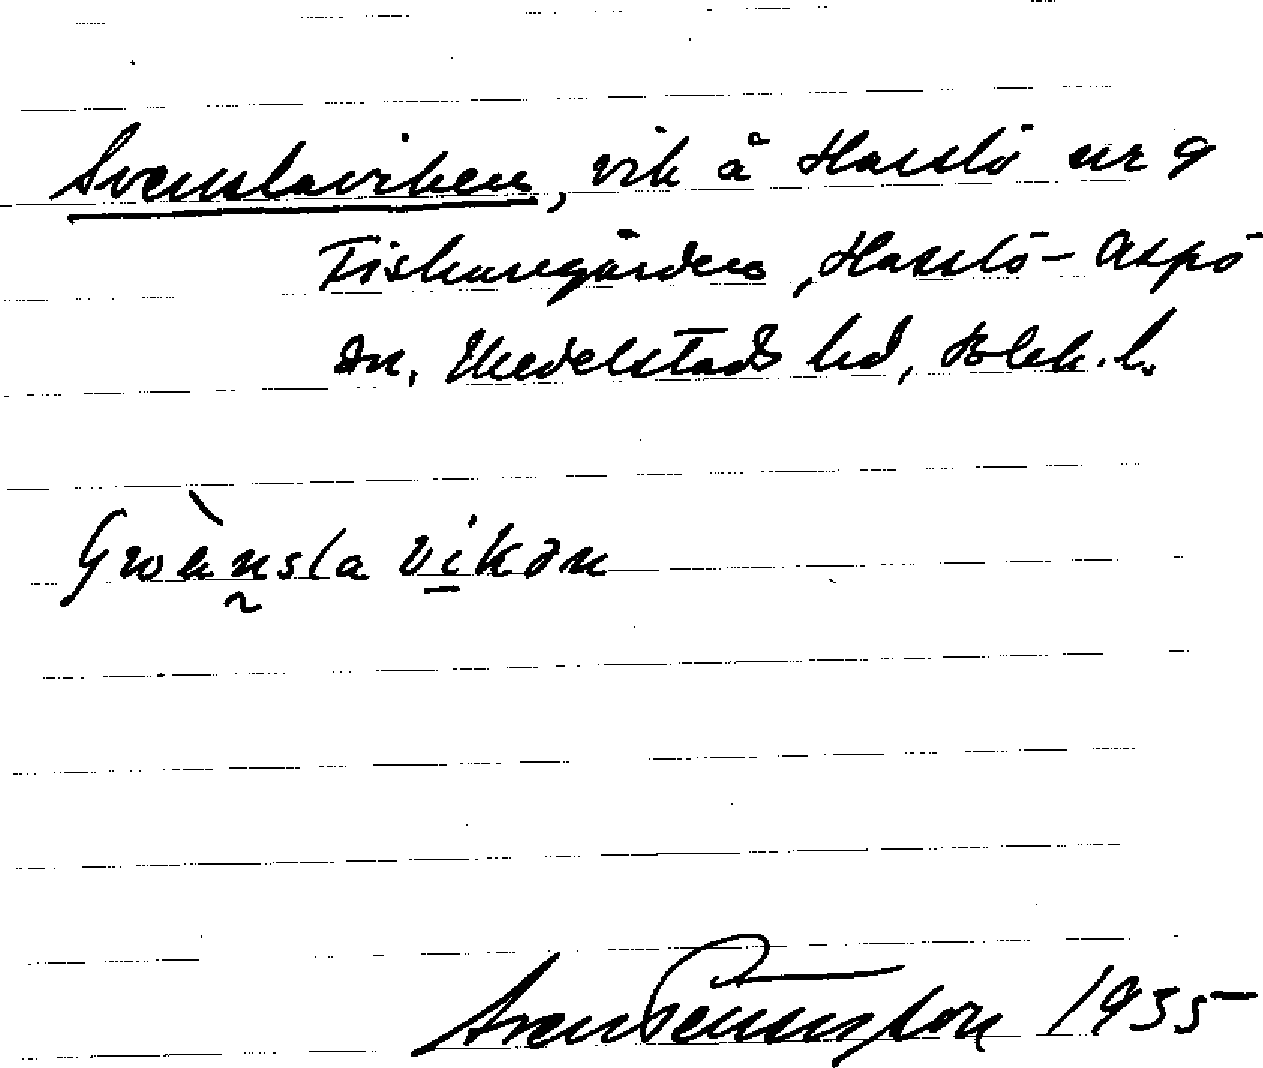 Svenslaviken, vik å Hasslö nr 9
Fiskaregården, Hasslö-Aspö
sn. Medelstads hd, Blek. l.
vikən
Sven Benson 1955